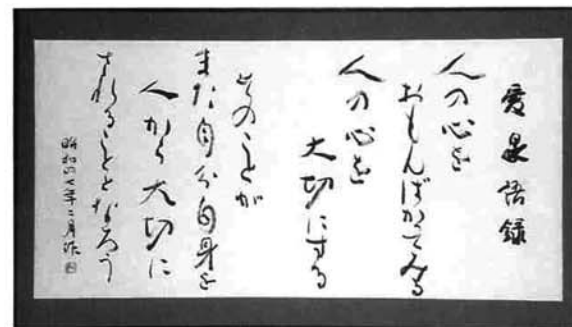 愛泉語録
人の心を
おもんばかってみる
人の心を
大切にする
そのことが
また自分自身を
人から大切に
されることとなろう
昭和五七年二月作